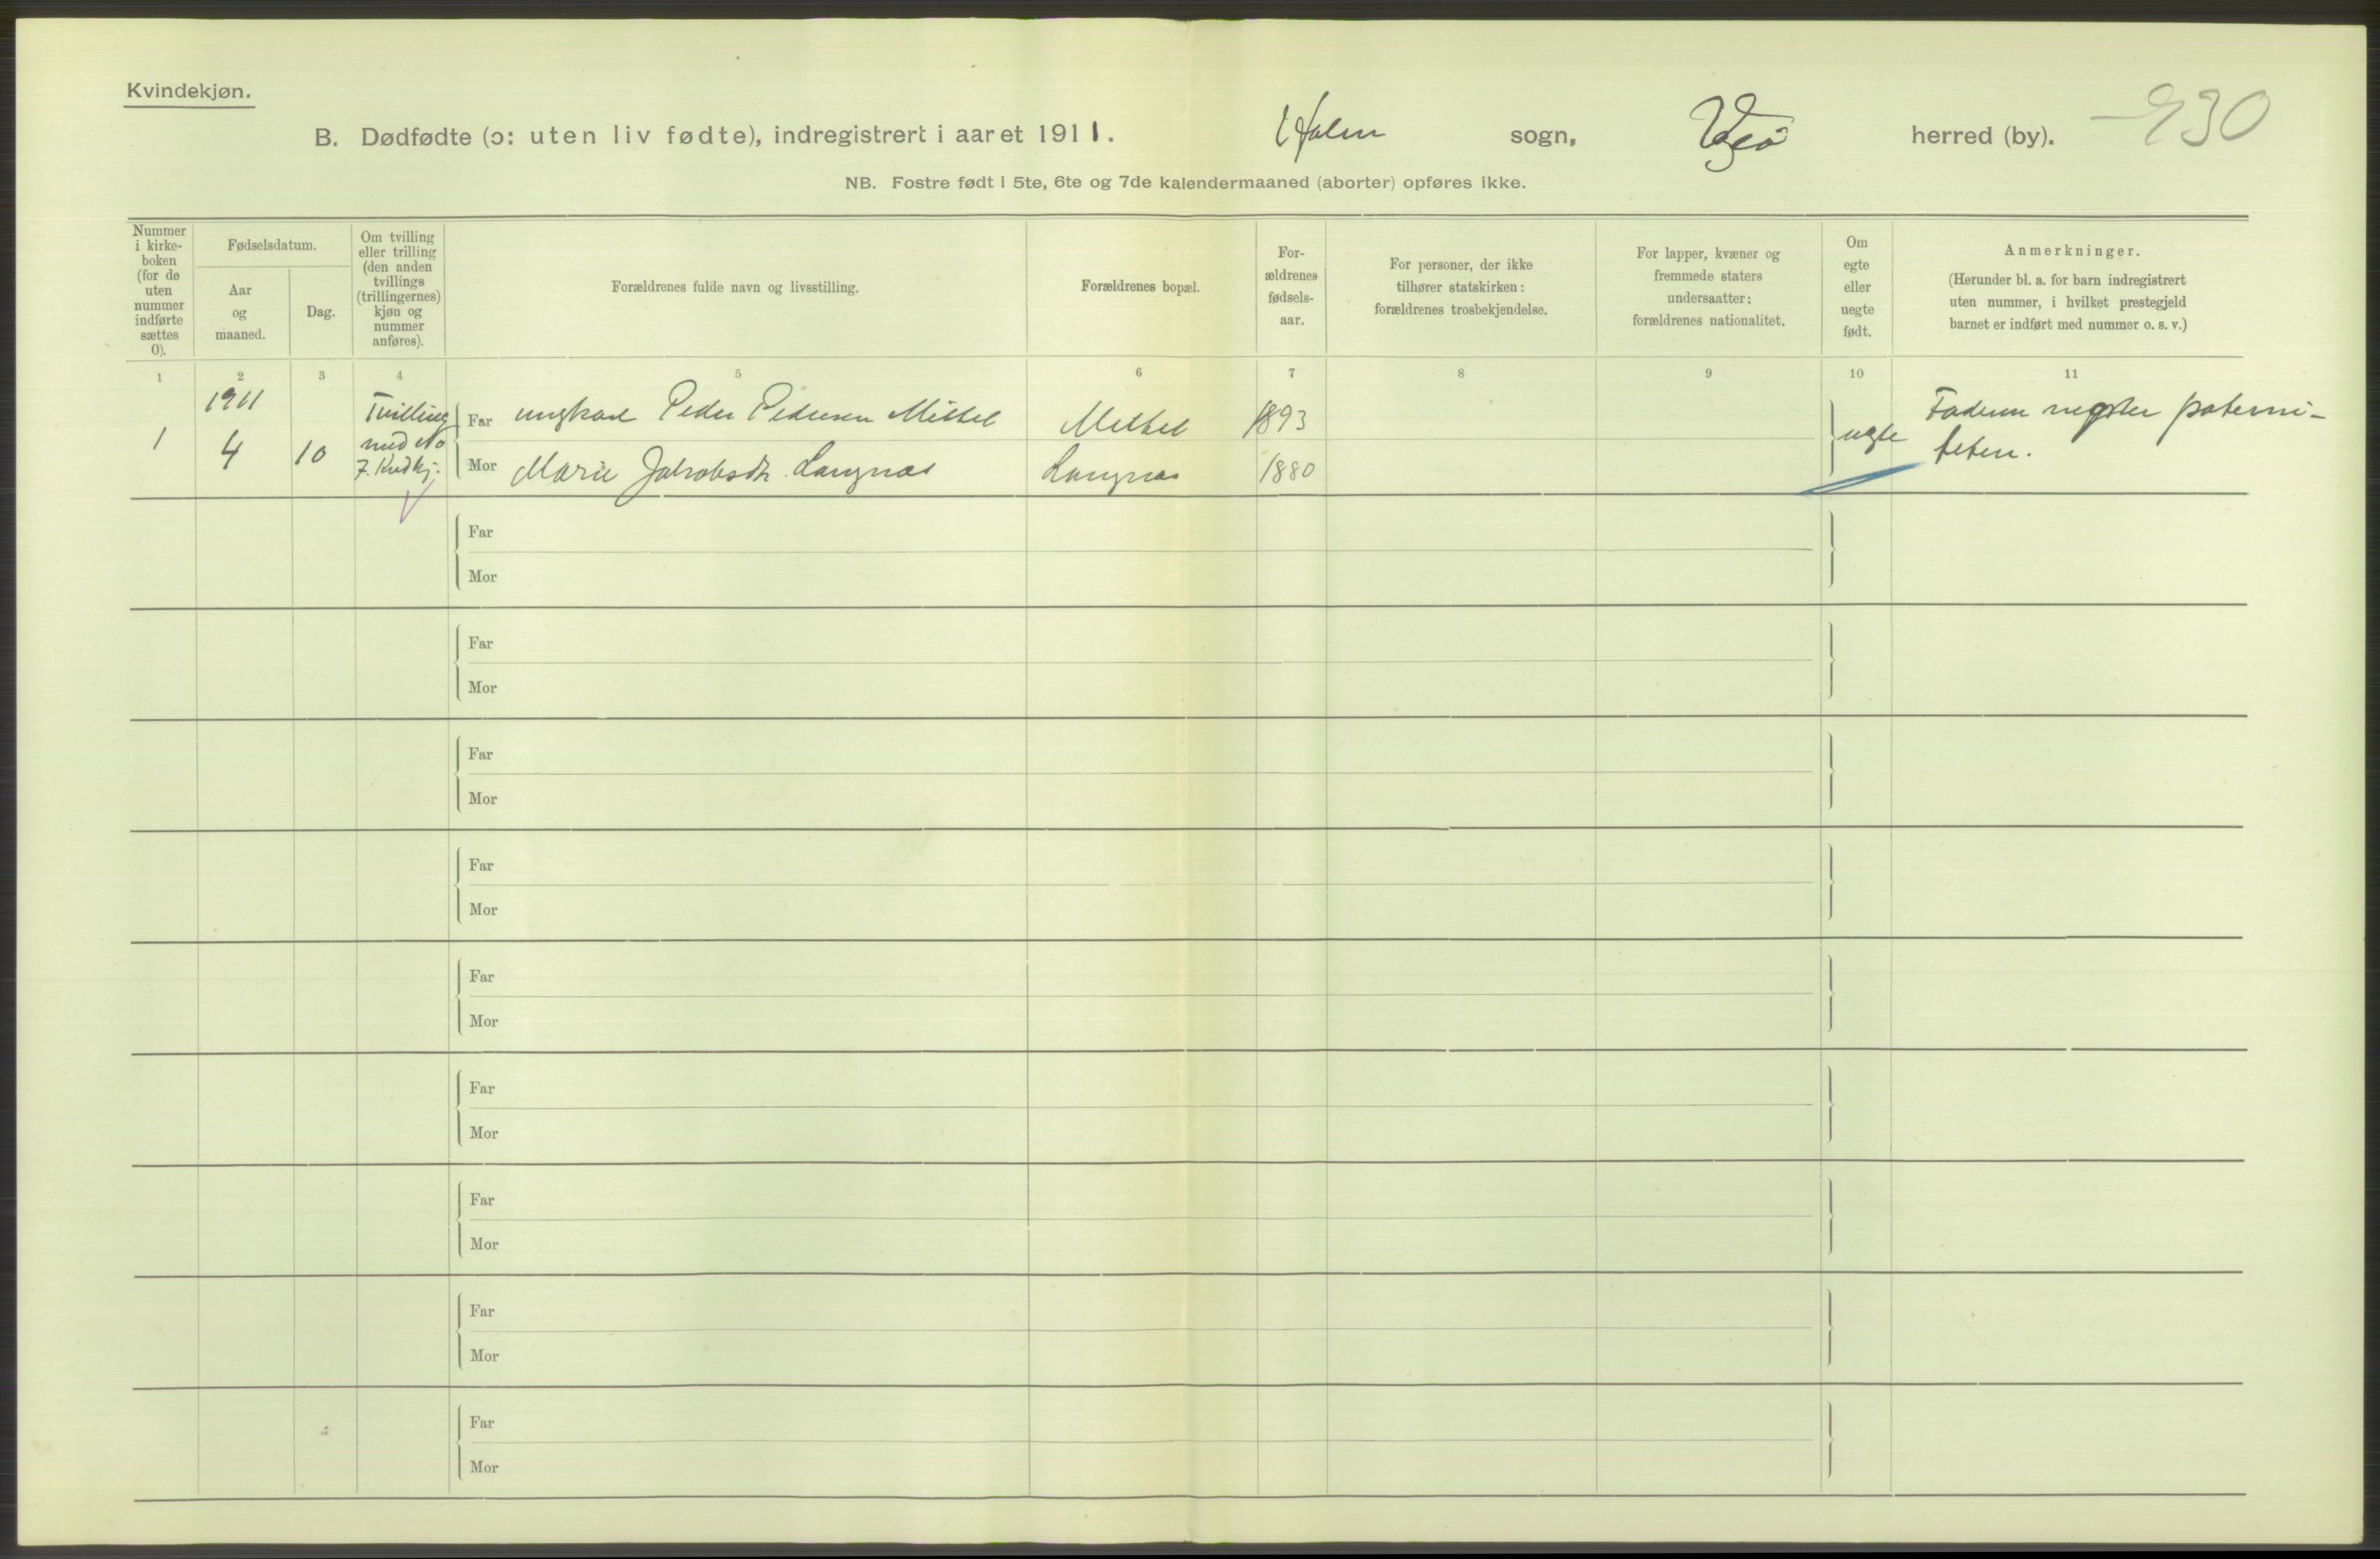 Kvindekjøn.
B. Dødfødte (ɔ: uten liv fødte), indregistrert i aaret 1911. Holm sogn, Veø herred (by). 930
NB. Fostre født i 5te, 6te og 7de kalendermaaned (aborter) opføres ikke.
Nummer
i kirke-
boken
(for de
uten
nummer
indførte
sættes
0).
Fødselsdatum.
Aar
og
maaned.
Dag.
Om tvilling
eller trilling
(den anden
tvillings
(trillingernes)
kjøn og
nummer
anføres).
Forældrenes fulde navn og livsstilling.
Forældrenes bopæl.
For-
ældrenes
fødsels-
aar.
For personer, der ikke
tilhører statskirken:
forældrenes trosbekjendelse.
For lapper, kvæner og
fremmede staters
undersaatter:
forældrenes nationalitet.
Om
egte
eller
uegte
født.
Anmerkninger.
(Herunder bl. a. for barn indregistrert
uten nummer, i hvilket prestegjeld
barnet er indført med nummer o. s. v.)
1 2 3 4 5 6 7 8 9 10 11
1
1911
4
10
Tvilling
med No
7. Kvdkj.
Far ungkarl Peder Pedersen Mittet
Mittet
1893
Mor Marie Jakobsdtr. Langnes
Langnes
1880
uegte
Faderen negter paterni-
teten.
Far
Mor
Far
Mor
Far
Mor
Far
Mor
Far
Mor
Far
Mor
Far
Mor
Far
Mor
Far
Mor